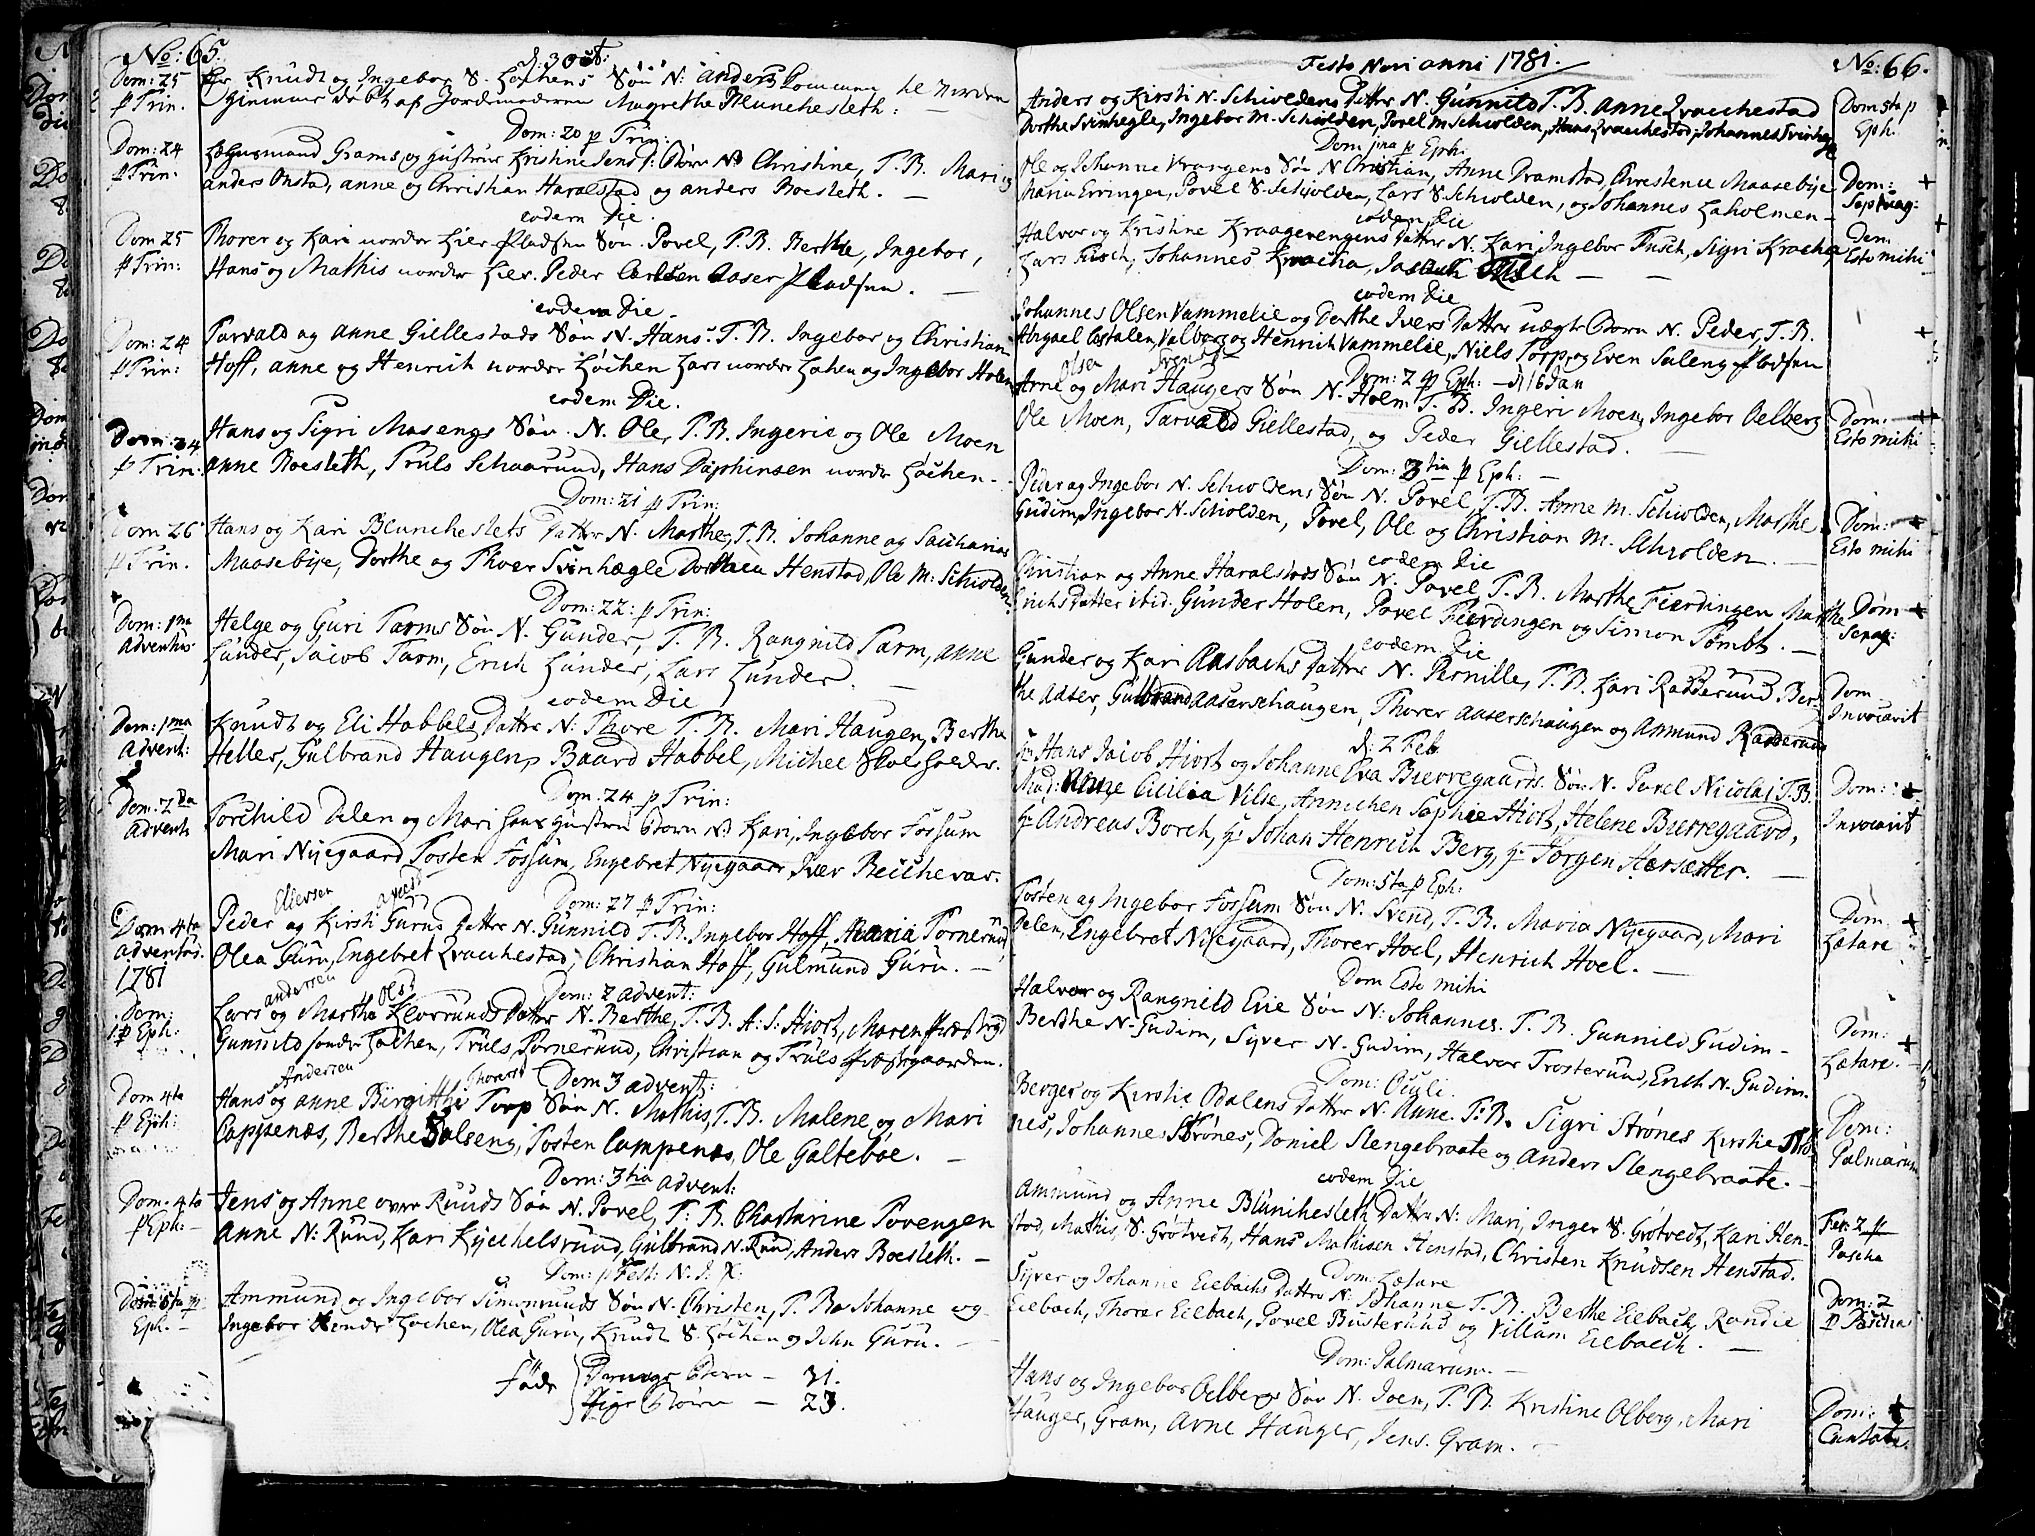 No: 65.
d: 30 Oct:
Dom: 25 p Trin.
Knudt og Ingebor S. Høchens Søn N: Anders kommen til Verden
giemmer døbt af Jordemoderen Magrethe Blunchesleth:
Dom: 20 p Trin:
Dom: 24 p Trin.
Gusmund Grams og Hustrue Kristine Jens D: Børn N Christine, T. B. Mari og
Anders Onstad, Anne og Christian Haralstad og Anders Boesleth. —
eodem Die.
Dom 25 p Trin:
Thorer og Kari nordre Hier Pladsen Søn. Povel, T. B. Berthe, Ingebor,
Hans og Mathis nordre Hier. Peder Carlsen Aaser Pladsen. —
eodem Die.
Dom: 24 p Trin:
Tarvald og Anne Giellestads Søn N. Hans. T. B. Ingebor og Christian
Hoff, Anne og Henrich nordre Høchen Lars nordre Høchen og Ingebor Holen
eodem Die.
Dom: 24 p Trin.
Hans og Sigri Masengs Søn. N. Ole, T. B. Ingerie og Ole Moen
Anne Boesleth, Truls Schaarud, Hans Daphinsen nordre Høchen. -
Dom: 21 p Trin:
Dom 26 p Trin.
Hans og Kari Blunchеslets Datter N. Marthe, T. B. Johanne og Sacharias
Maasebye, Dorthe og Thoer Svinhægle Dorthea Henstad, Ole M: Schiolden
Dom: 22: p Trin:
Dom: 1ma Adventus.
Helge og Guri Tarms Søn N. Gunder, T. B. Rangnild Tarm, Anne
Lunder, Jacob Tarm, Erich Lunder, Lars Lunder. —
eodem Die
Dom: 1ma Advent:
Knudt og Eli Habbels Datter N: Thore T. B. Mari Haugen, Berthe
Helle, Gulbrand Haugen, Baard Habbel, Michel
Dom: 24 p Trin:
Dom: 2da Advent
Torchild Delen og Mari hans Hustru Børn N Kari, Ingebor Fossum
Mari Nyegaard Tosten Fossum, Engebret Nyegaard Iver Beichevar.
Dom: 27 p Trin:
Dom 4ta Adventus.
Eliersen
Peder og Kirsti Guruds Datter N. Gunnild T. B. Ingebor Hoff, Maria Tornerud,
Olea Guru, Engebret Qvachestad, Christian Hoff, Gulmund Guru. —
1781
Dom: 2 Advent:
Dom: 1 p Eph:
Andersen Ols:
Lars og Marthe Kleverunds Datter N. Berthe, T. B. H. S: Hiort, Maren Præstegd
Gunnild søndre Høchen, Truls Tornerund, Christian og Truls Præstegaarden.
Dom 3 Advent:
Dom 4ta p Eph:
Andersen Thorers
Hans og Anne Birgitthe Torp Søn N. Mathis, T. B. Malene og Mari
Cappenæs, Berthe Salseng, Tosten Campenæs, Ole Galteboe. —
Dom: 3tia Advent:
Dom. 4ta p Eph: -
Jens og Anne over Ruuds Søn N. Povel, T. B. Chatarine Povengen
Anne N: Rund, Kari Kjechelsrund, Gulbrand N. Rund, Anders Boesleth. —
Dom: p Fest: N. J. X:
Dom 5ta p Eph. —
Ammund og Ingebor Simonruuds Søn N. Christen, T. B. Johanne og
Ingebor søndre Høchen, Olea Guru, Knudt S. Høchen og John Guru. —
Føde { Drenge Børn — 31.
Pige Børn — 23.
Festo Novi anni 1781.
No: 66.
Anders og Kirsti N. Schioldens Datter N. Gunnild T. B. Anne Qvachestad
Dom 5ta p Eph:
Dorthe Svinhegle, Ingebor M. Schiolden, Povel M Schiolden, Hans Qvachestad, Johannes Svinhegle
Dom: 1ma p Eph:
Ole og Johanne Vrangens Søn N Christian, Anne Dramstad, Chrestence Maasebye
Dom: Septuag:
Maria Erringen, Povel S. Schiolden, Lars S. Schiolden, og Johannes Laholmen -
eodem Die
Halvor og Kristine Kraagevengens Datter N. Kari, Ingebor Fusch, Sigri Kracha
Dom: Esto mihi
Lars Fusch, Johannes Kracha, Jacob Fusch —
eodem Die
Johannes Olsen Vammelie og Dorthe Ivers Datter uægte Børn N. Peder, T. B.
Abigael Costalen, Valborg og Henrich Vammelie, Niels Torp, og Even Saleng Pladsen
Dom: 2 p Eph: — d 16 Jan
Olsen Svends
Arne og Mari Haugers Søn N. Holm T. B. Ingeri Moen, Ingebor Oelberg
Dom: Esto mihi
Ole Moen, Tarvald Giellestad, og Peder Giellestad. —
Dom: 3tia p Eph: —
Peder og Ingebor N. Schioldens Søn N. Povel, T. B. Anne M. Schiolden, Marthe
Dom: Esto mihi
Gudim, Ingebor N. Schiolden, Povel, Ole og Christian M. Schiolden. —
eodem Die
Christian og Anne Haralstads Søn N. Povel T. B. Marthe Fierdingen Marthe
Dom Sexag:
Erichs Datter ibid. Gunder Holen, Povel Fierdingen og Simon Tømbt. —
eodem Die
Gunder og Kari Aasbachs Datter N. Pernille, T. B. Kari Radderuud. Ber-
Dom Invocavit
the Aaser, Gulbrand Aaserschaugen, Thorer Aaserschaugen og Ammund Radderud
d: 2 Feb
Hr Hans Jacob Hiort og Johanne Eva Bierregaards Søn N. Povel Nicolai T. B.
Dom: Invocavit
Mad: Anne Cicilia Vilse, Annichen Sophie Hiort, Helene Bierregaard,
Hr Andreas Borch, Hr Johan Henrich Berg, Hr Jørgen Hersætter. —
Dom: 5ta p Eph:
Tosten og Ingebor Fossum Søn N. Svend, T. B. Maria Nyegaard, Mari
Dom: Lætare
Delen, Engebret Nyegaard, Thorer Hoel, Henrich Hoel. —
Dom Esto mihi
Halvor og Rangnild Evie Søn N: Johannes. T. B. Gunnild Gudim -
Dom: Lætare. -
Berthe N. Gudim, Syver N. Gudim, Halvor Trosterud, Erich N. Gudim.
Dom: Oculi.
Berger og Kirstie Odalens Datter N: Anne. T. B. Sigri Strønes Kirstie Strø-
Dom: Palmarum
nes, Johannes Strønes, Daniel Slengebraate og Anders Slengebraate. —
eodem Die
Ammund og Anne Blunchesleth Datter N: Mari, Inger S. Grøtvedt, Kari Hen-
Fer: 2 p Pascha
stad, Mathis S. Grøtvedt, Hans Mathisen Henstad, Christen Knudsen Henstad.
Dom: Lætare
Syver og Johanne Eiebachs Datter N: Johanne T. B. Berthe Eiebach, Randie
Dom: 2 p Pascha
Eiebach, Thorer Eiebach, Povel Busterud og Villum Eiebach. —
Dom: Palmarum. —
Hans og Ingebor Oelbergs Søn N. Joen, T. B. Kristine Olberg, Mari
Dom: Cantate
Hauger, Gram, Arne Hauger, Jens Gram. —